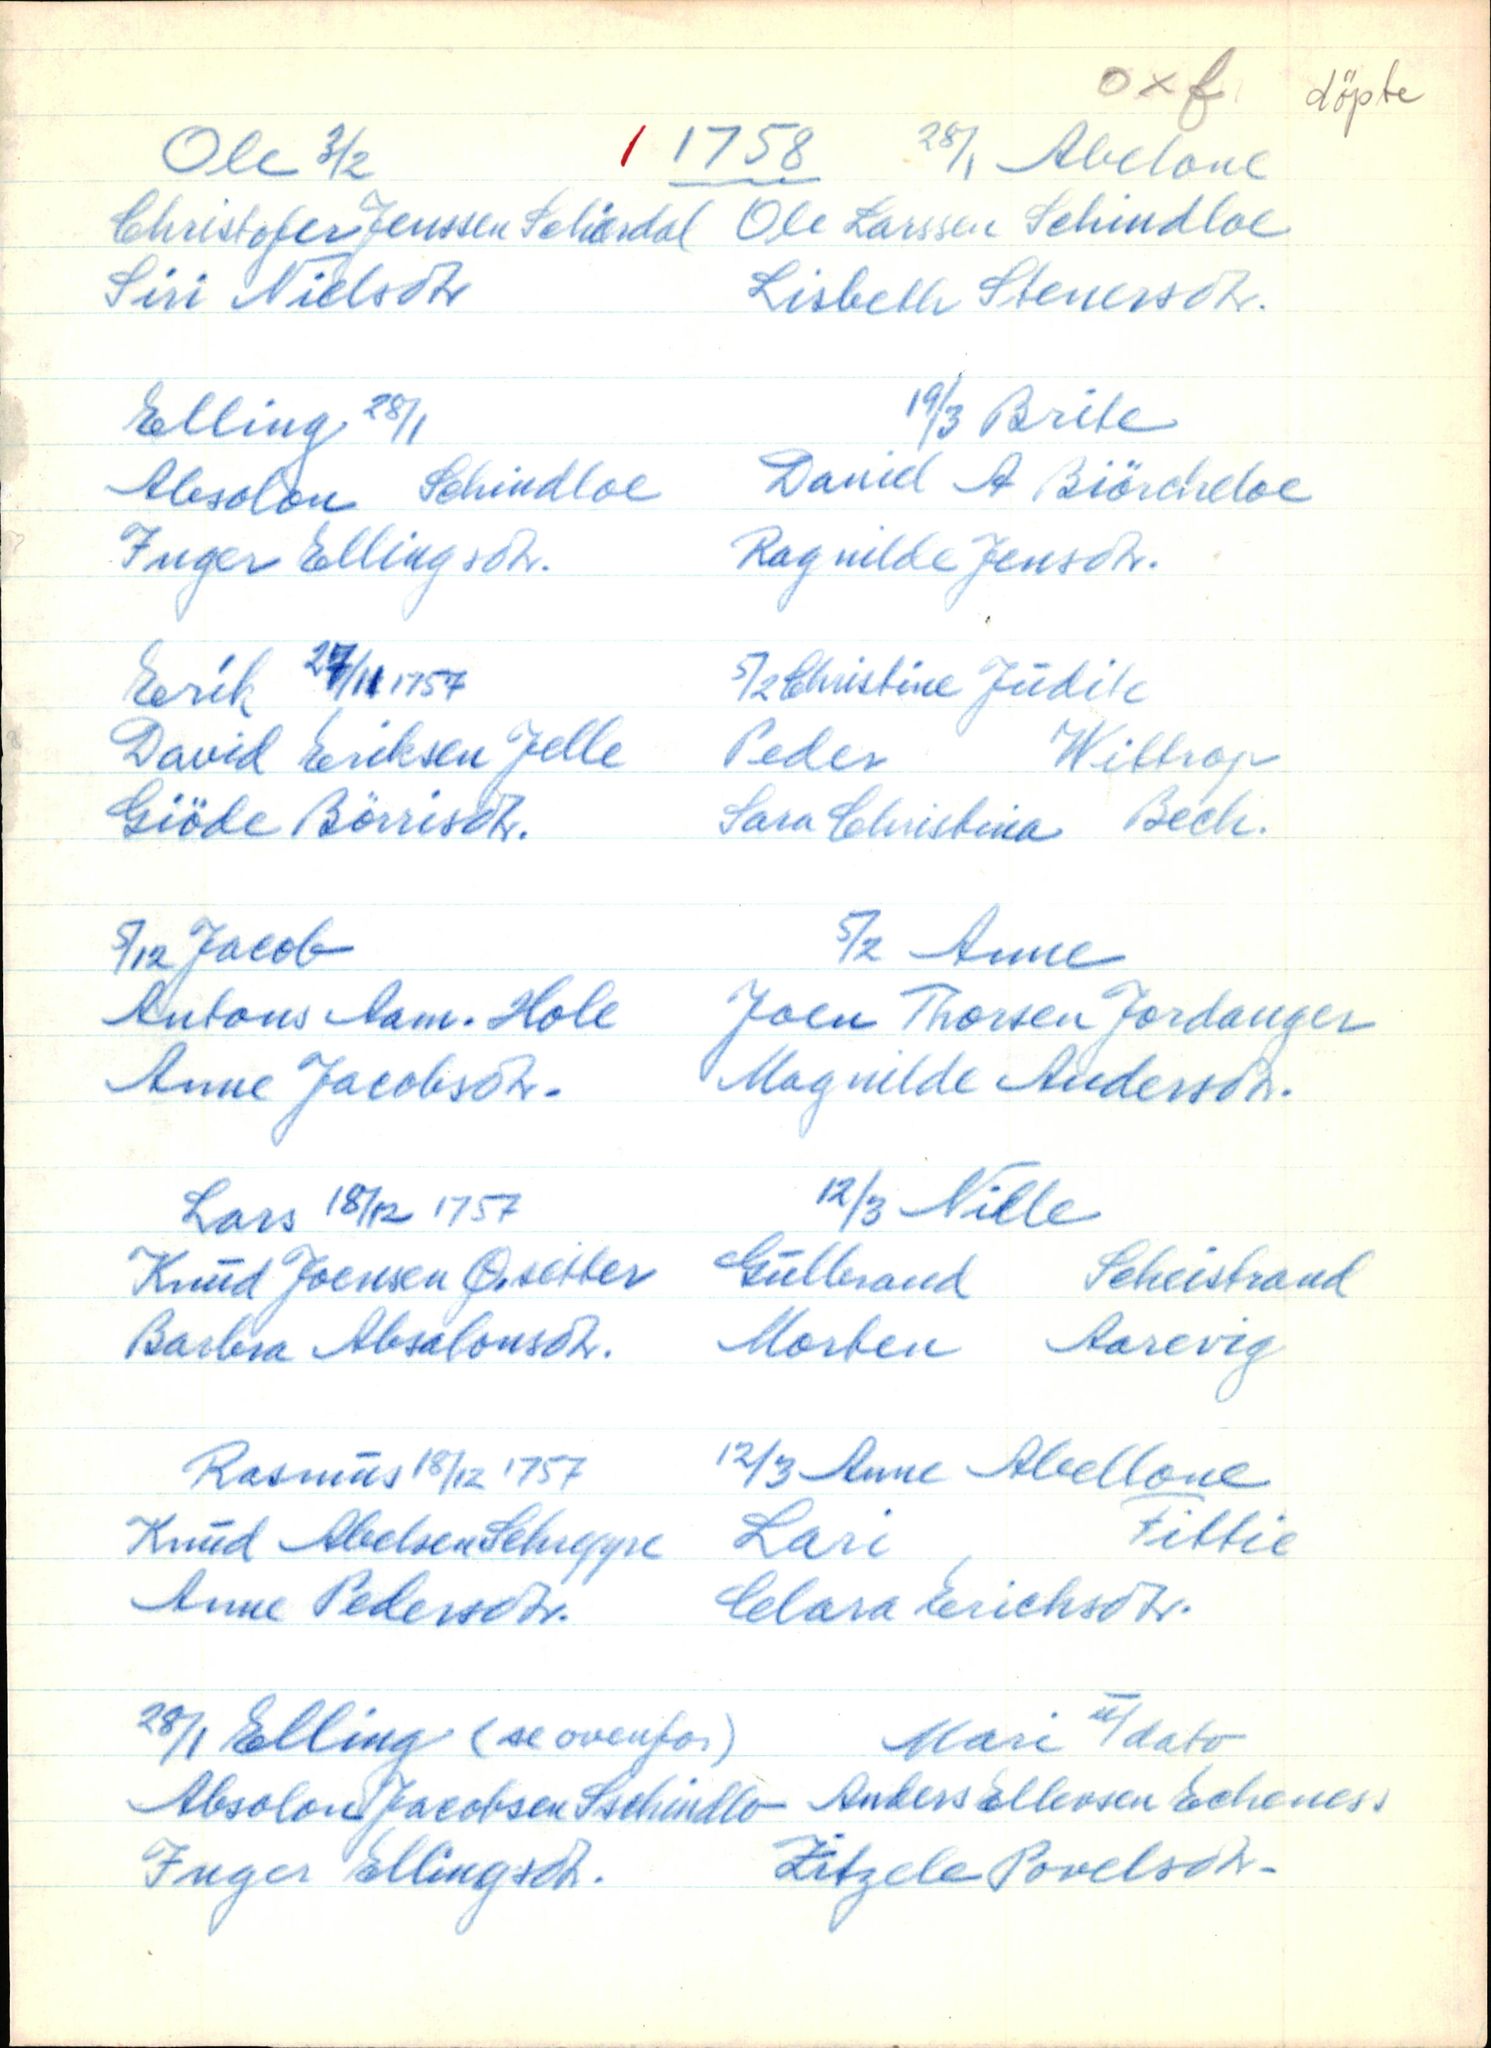 oxf døpte
Ole 3/2 1 1758 28/1 Abelone
Christofer Jenssen Schierdal Ole Larssen Schindloe
Siri Nielsdtr Lisbeth Stenersdtr.
Elling 28/1 19/3 Brite
Absolon Schindloe David A Biörcheloe
Inger Ellingsdtr. Ragnilde Jensdtr.
Erik 27/11 1757 5/2 Christine Judite
David Eriksen Jelle Peder Wittrop
Giöde Börrisdtr. Sara Christina Bech.
5/12 Jacob 5/2 Anne
Antons Aam. Hole Joen Thorsen Jordanger
Anne Jacobsdtr. Magnilde Andersdtr.
Lars 18/12 1757 12/3 Nille
Knud Joensen Qvitter Gulbrand Scheistrand
Barbra Absalonsdtr. Morten Aarevig
Rasmus 18/12 1757 12/3 Anne Abellone
Knud Abelsen Schreppe Lari Fittie
Anne Pedersdtr. Clara Erichsdtr.
28/1 Elling (se ovenfor) Mari u/dato
Absolon Jacobsen Sschindlo Anders Ellevsen Echeness
Inger Ellingsdtr. Zitzele Povelsdtr.